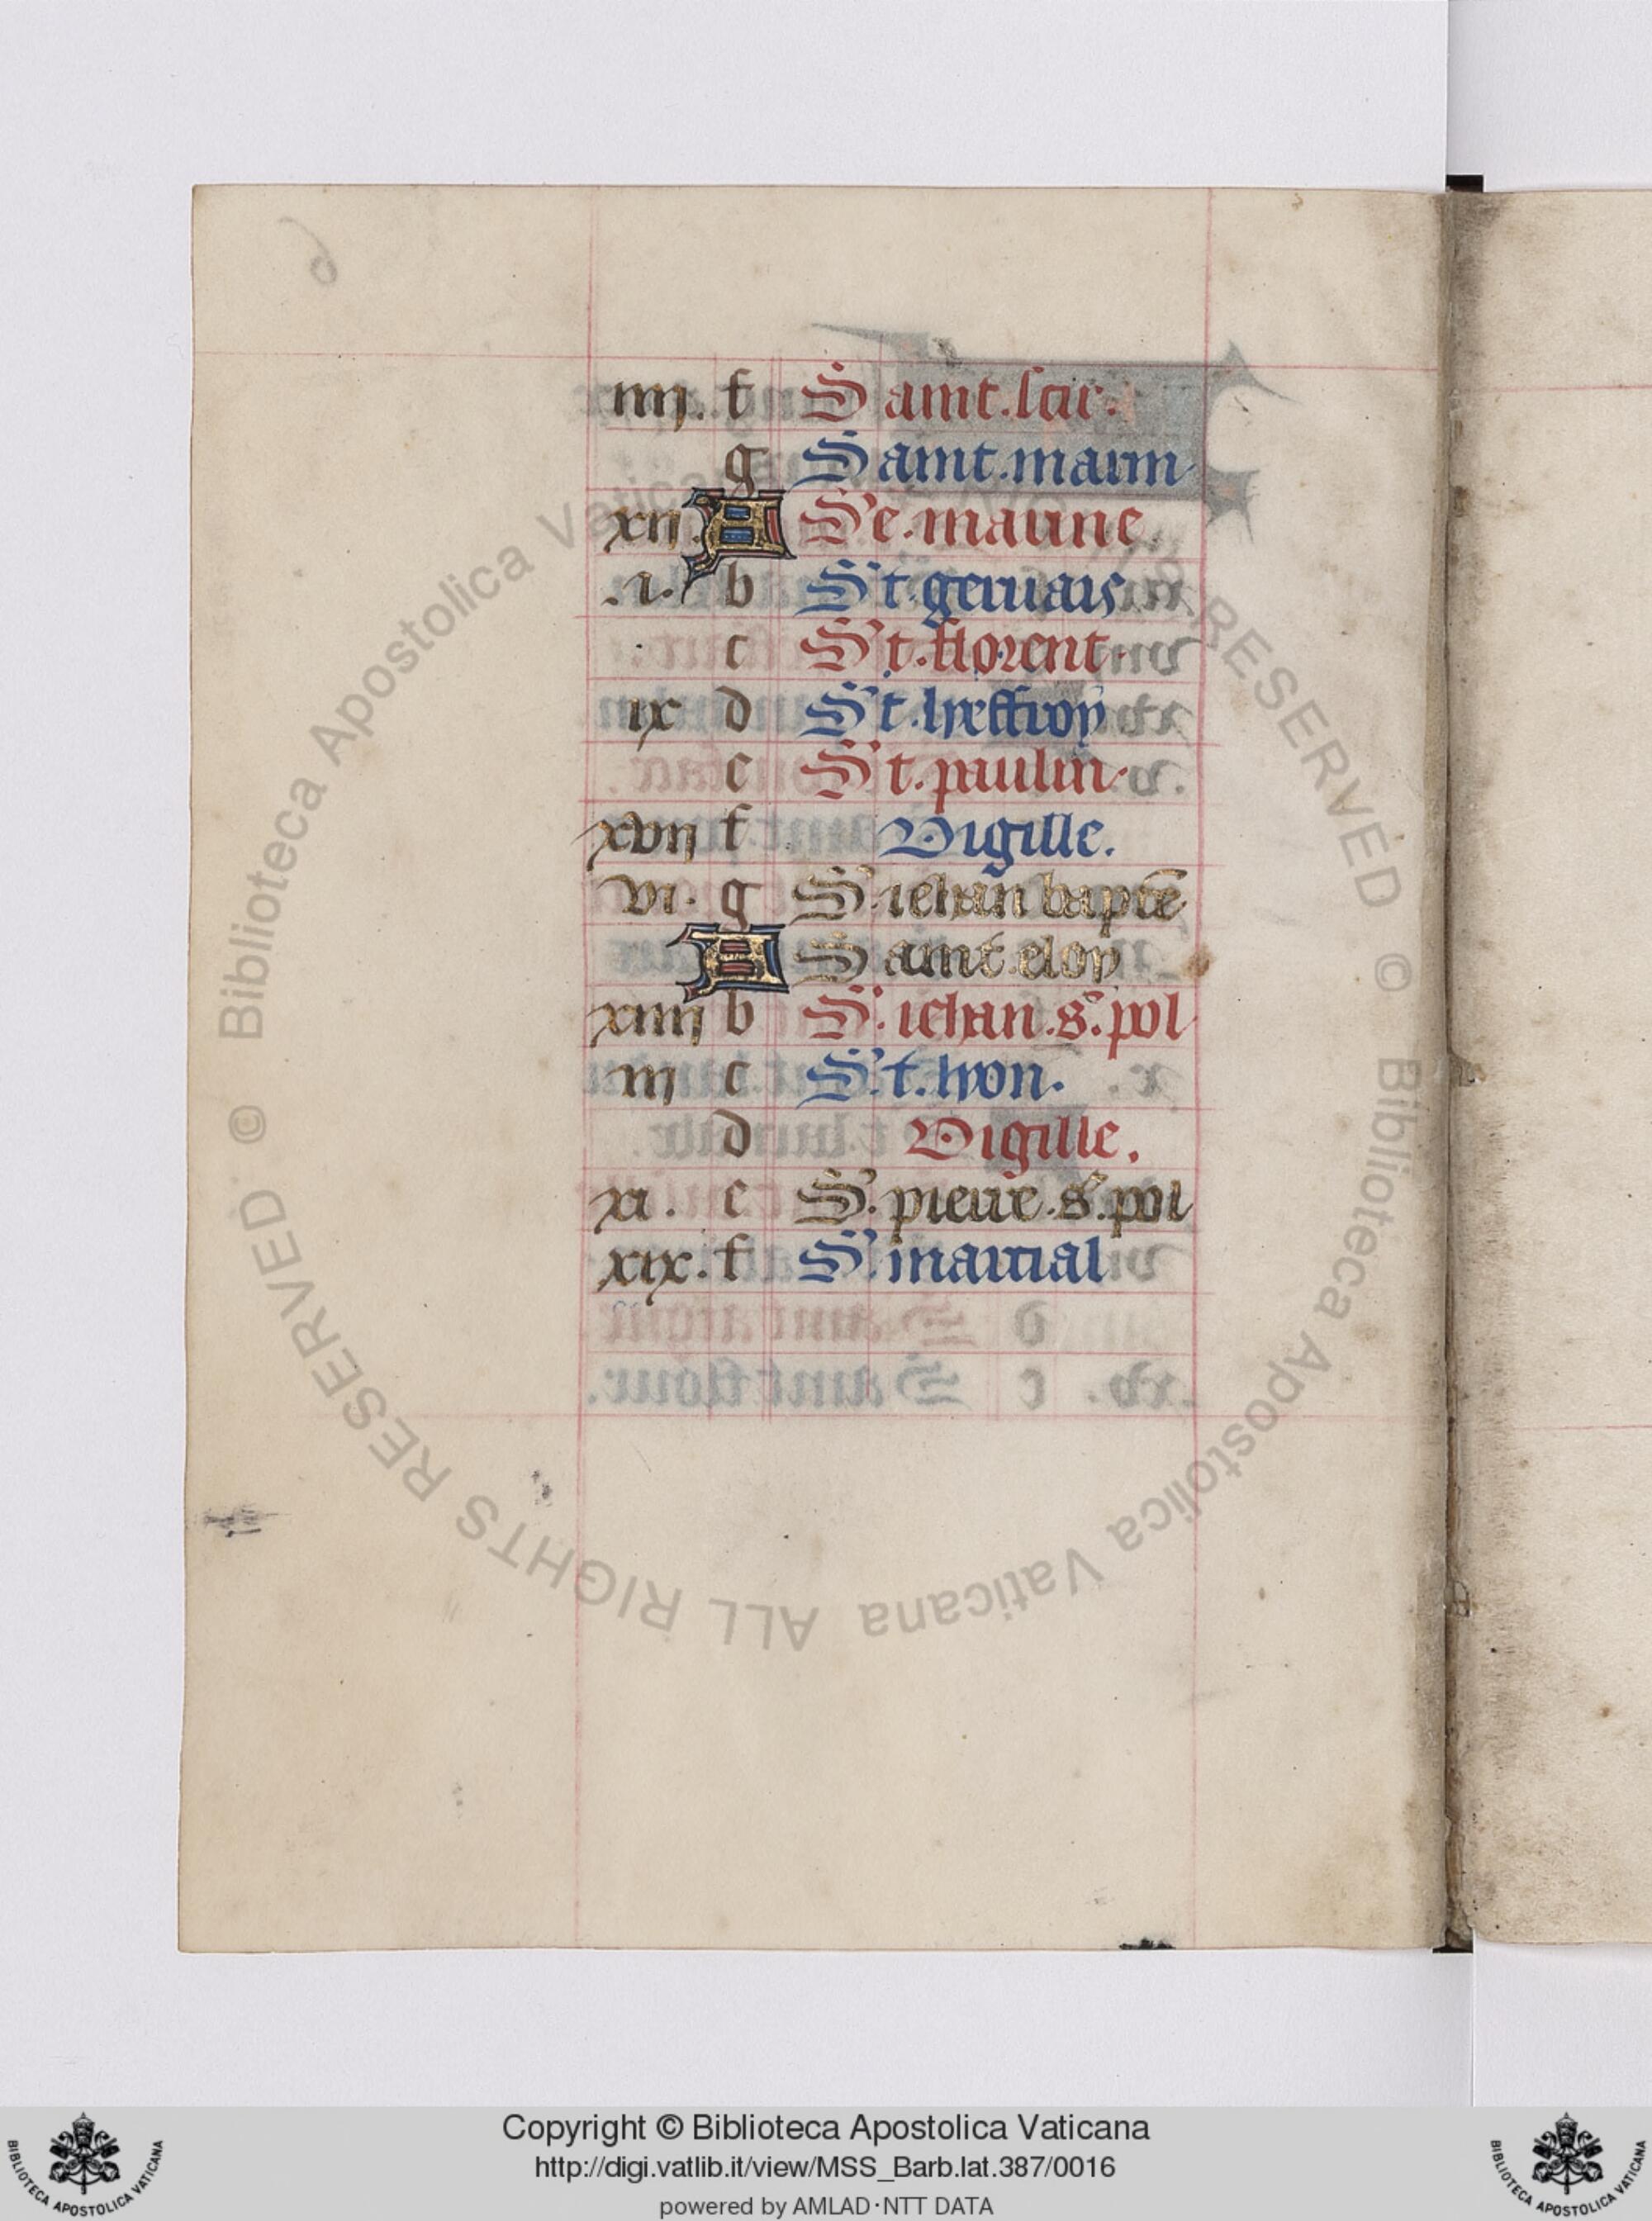 iiij. f Saint.scir.
g Saint.marin
xij. A Se.maurine
.i. b St.geruais
c St.florent.
ix d St.heffroy
e St.paulin.
xvij f Vigille.
vi. g S.iehan bapte
A Saint.eloy
xiiij b S.iehan.s.pol
iij c S.t.lyon.
d Vigille.
xi. e S.pierre.s.pol
xix. f S.marcial
© Biblioteca Apostolica Vaticana ALL RIGHTS RESERVED
© Biblioteca Apostolica Vaticana ALL RIGHTS RESERVED
Copyright © Biblioteca Apostolica Vaticana
http://digi.vatlib.it/view/MSS_Barb.lat.387/0016
powered by AMLAD·NTT DATA
BIBLIOTECA APOSTOLICA VATICANA
BIBLIOTECA APOSTOLICA VATICANA